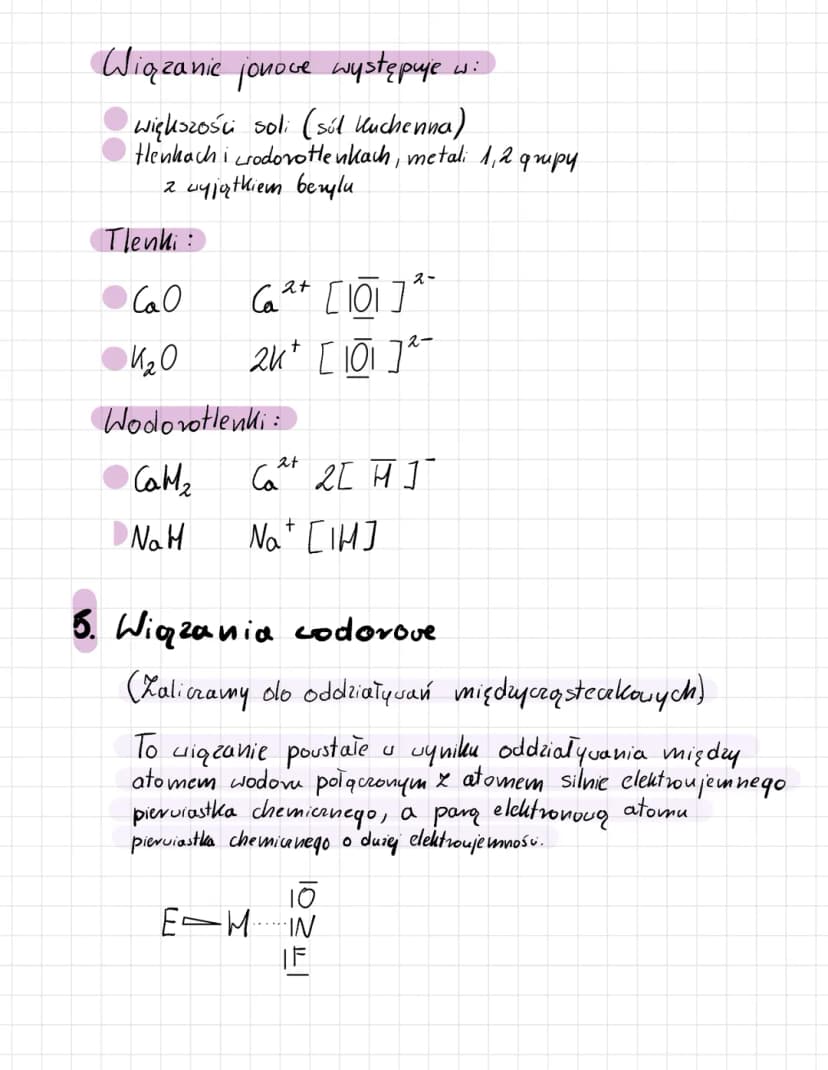 Wiązanie jonowe występuje w:
większości soli (sól kuchenna)
tlenkach i wodorotlenkach, metali 1,2 grupy
z wyjątkiem berylu
Tlenki:
CaO Ca²⁺ [|O̲̅|]²⁻
K₂O 2K⁺ [|O̲̅|]²⁻
Wodorotlenki:
CaH₂ Ca²⁺ 2[H̅]⁻
NaH Na⁺ [|H]
5. Wiązania wodorowe
(Zaliczamy do oddziaływań międzycząsteczkowych)
To wiązanie powstałe w wyniku oddziaływania między
atomem wodoru połączonym z atomem silnie elektroujemnego
pierwiastka chemicznego, a parą elektronową atomu
pierwiastka chemicznego o dużej elektroujemności.
|O̅
E―H······|N
|F̲